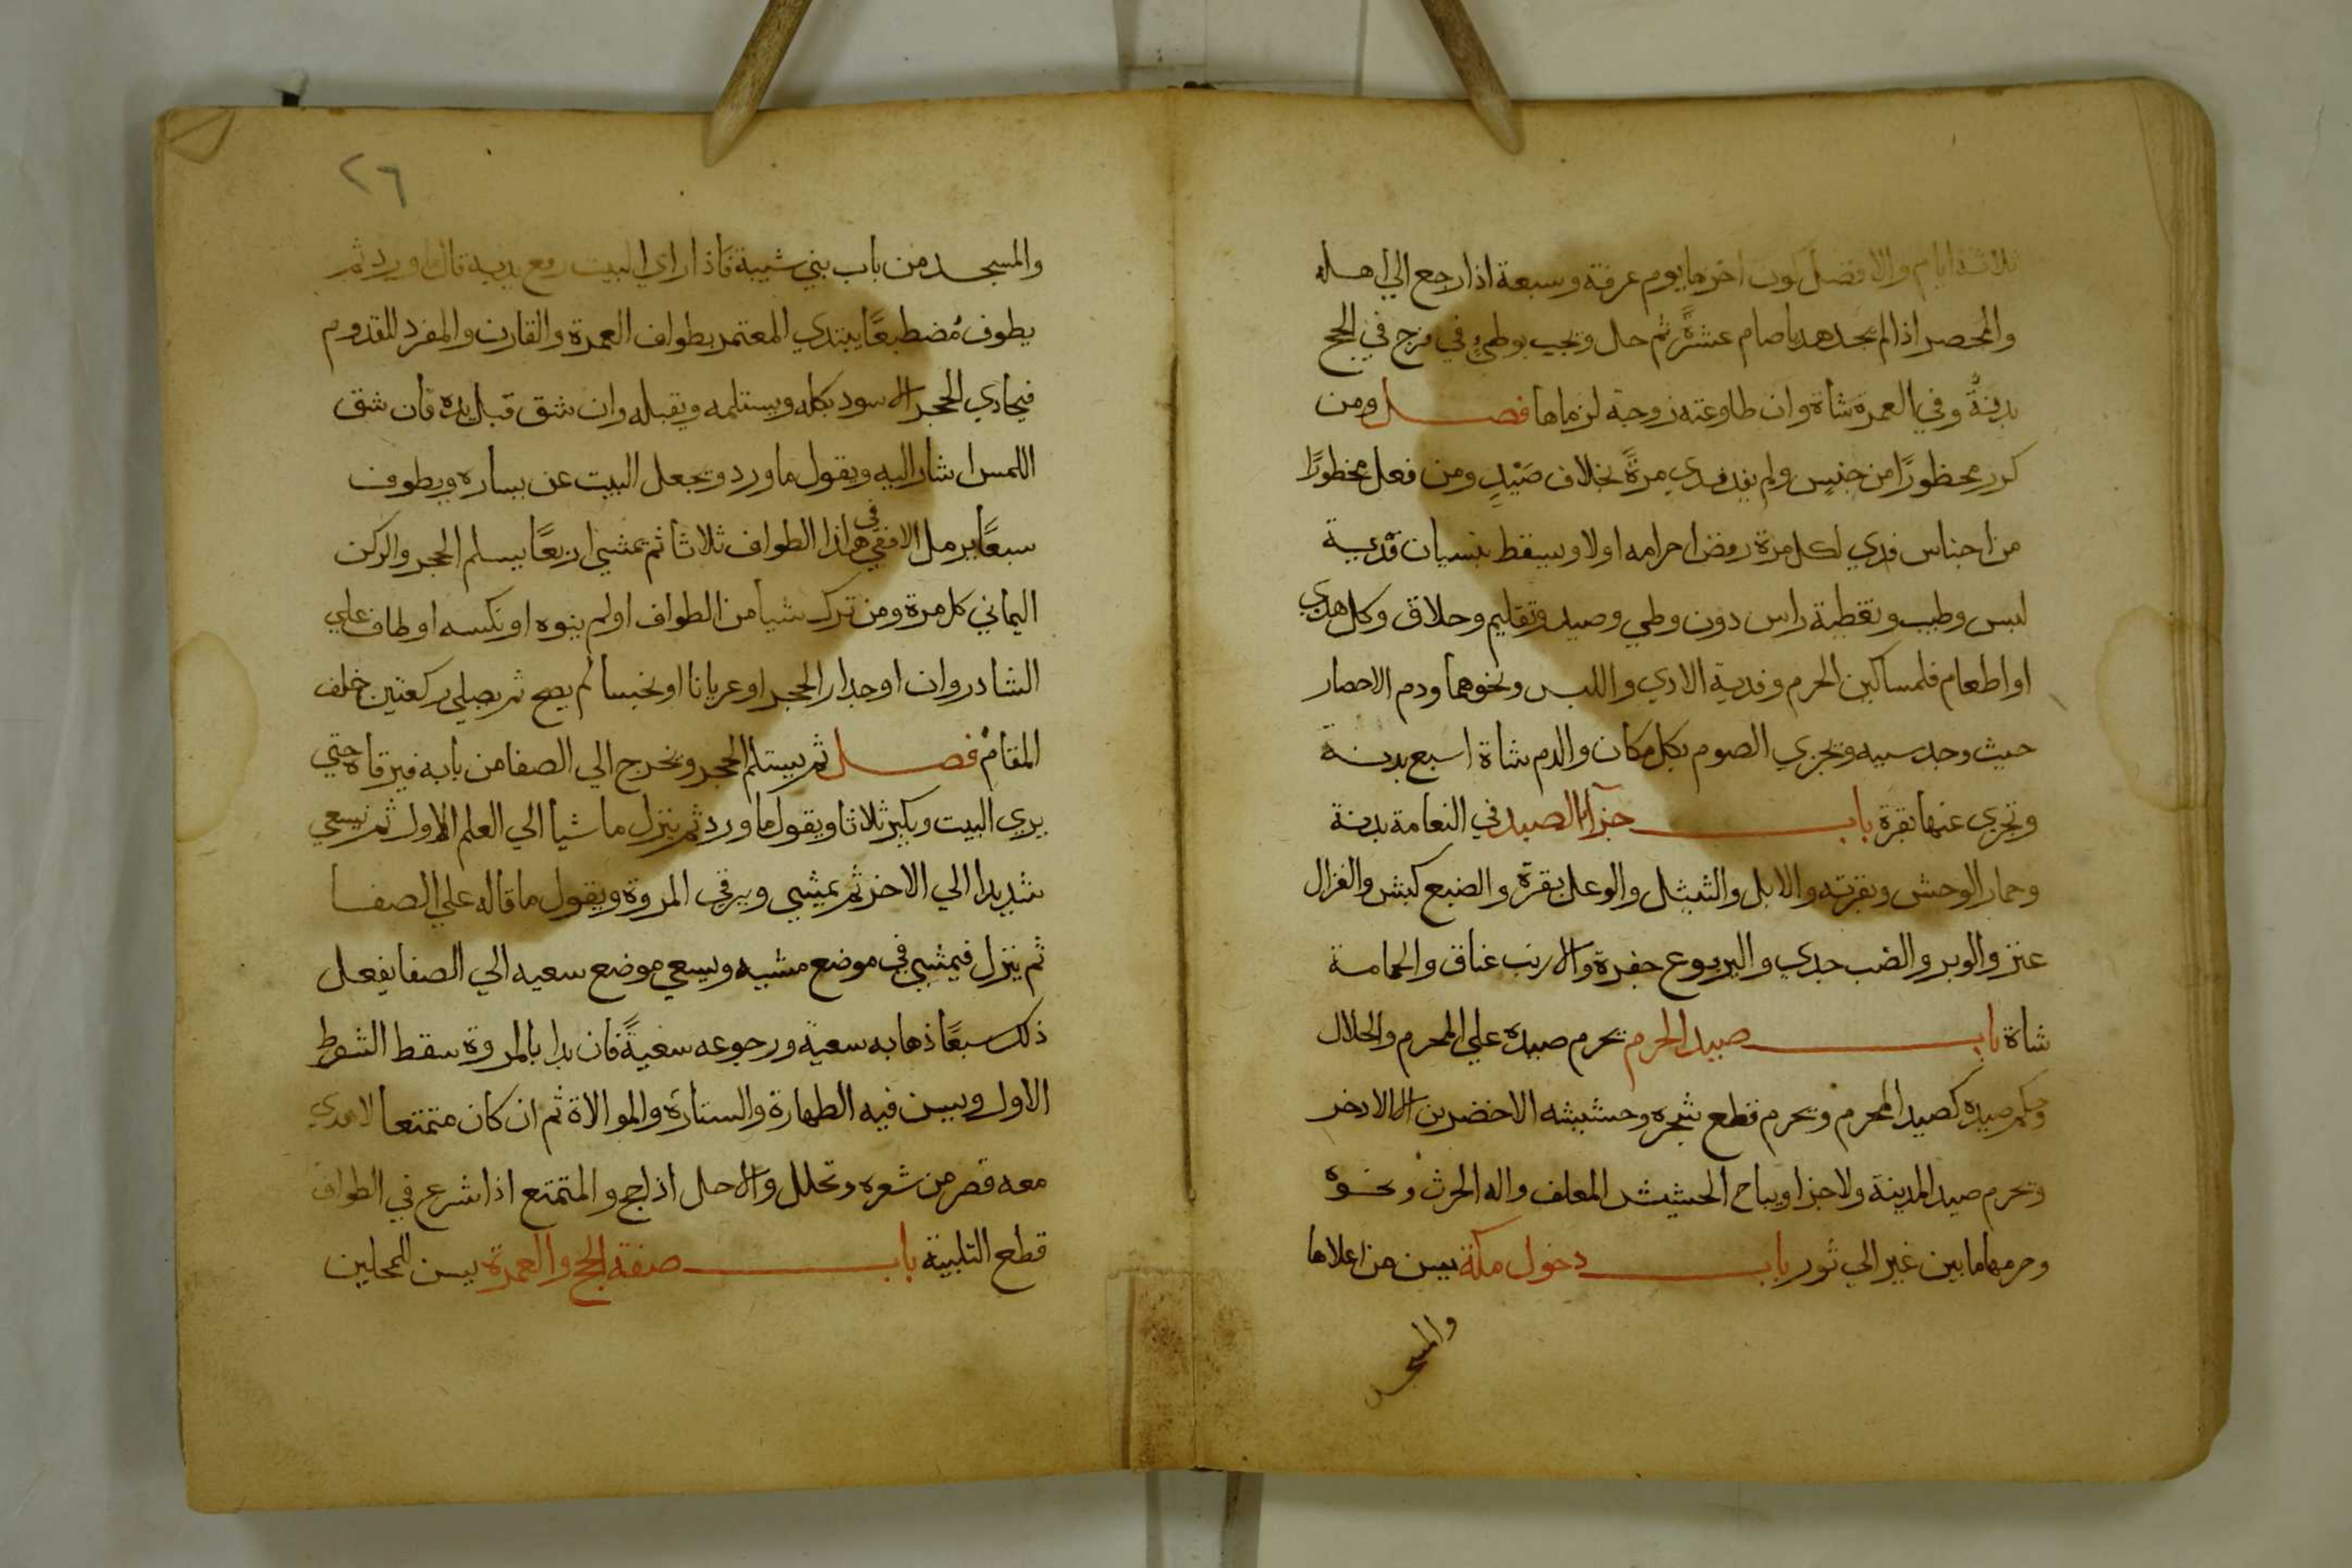 ثلاثة ايام والافضل كون اخرها يوم عرفة وسبعة اذا رجع الي اهله
والمحصر اذا لم يجد هديا صام عشرةً ثم حل ويجب بوطيءٍ في فرج في الحج
بدنةٌ وفي العمرة شاة وان طاوعته زوجة لزماها فصل ومن
كرر محظورًا من جنس ولم يفد فدي مرةً بخلاف صَيْدٍ ومن فعل محظورًا
من اجناس فدي لكل مرة رفض احرامه اولا ويسقط بنسيان فدية
لبس وطيب وتغطية راس دون وطي وصيد وتقليم وحلاق وكل هدي
او اطعام فلمساكين الحرم وفدية الادي واللبس ونحوهما ودم الاحصار
حيث وجد سببه ويجزي الصوم بكل مكان والدم شاة اسبع بدنة
وتجزي عنها بقرة باب جزاء الصيد في النعامة بدنة
وحمار الوحش وبقرته والابل والثيثل والوعل بقرة والضبع كبش والغزال
عنز والوبر والضب جدي واليربوع جفرة والارنب عناق والحمامة
شاة باب صيد الحرم يحرم صيده علي المحرم والحلال
وحكم صيده كصيد المحرم ويحرم قطع شجره وحشيشه الاخضرين الا الادخر
ويحرم صيد المدينة ولا جزا ويباح الحشيش للعلف واله الحرث ونحوه
وحرمها ما بين عير الي ثور باب دخول مكة يسن من اعلاها
والمسجد
٢٦
والمسجد من باب بني شيبة فاذا راي البيت رفع يديه وقال ما ورد ثم
يطوف مُضطبعًا يبتدي المعتمر بطواف العمرة والقارن والمفرد للقدوم
فيحادي الحجر الاسود بكله ويستلمه ويقبله وان شق قبل يده فان شق
اللمس اشار اليه ويقول ما ورد ويجعل البيت عن يساره ويطوف
سبعًا يرمل الافقي في هذا الطواف ثلاثا ثم يمشي اربعًا يستلم الحجر والركن
اليماني كل مرة ومن ترك شيا من الطواف او لم ينوه او نكسه او طاف علي
الشادروان او جدار الحجر او عريانا او نجسا لم يصح ثم يصلي ركعتين خلف
المقام فصل ثم يستلم الحجر ويخرج الي الصفا من بابه فيرقاه حتي
يري البيت ويكبر ثلاثا ويقول ما ورد ثم ينزل ماشيا الي العلم الاول ثم يسعي
شديدا الي الاخر ثم يمشي ويرقي المروة ويقول ما قاله علي الصفا
ثم ينزل فيمشي في موضع مشيه ويسعي موضع سعيه الي الصفا يفعل
ذلك سبعًا ذهابه سعية ورجوعه سعيةً فان بدا بالمروة سقط الشوط
الاول ويسن فيه الطهارة والستارة والموالاة ثم ان كان متمتعا لا هدي
معه قصر من شعره وتحلل والا حل اذا حج والمتمتع اذا شرع في الطواف
قطع التلبية باب صفة الحج والعمرة يسن للمحلين